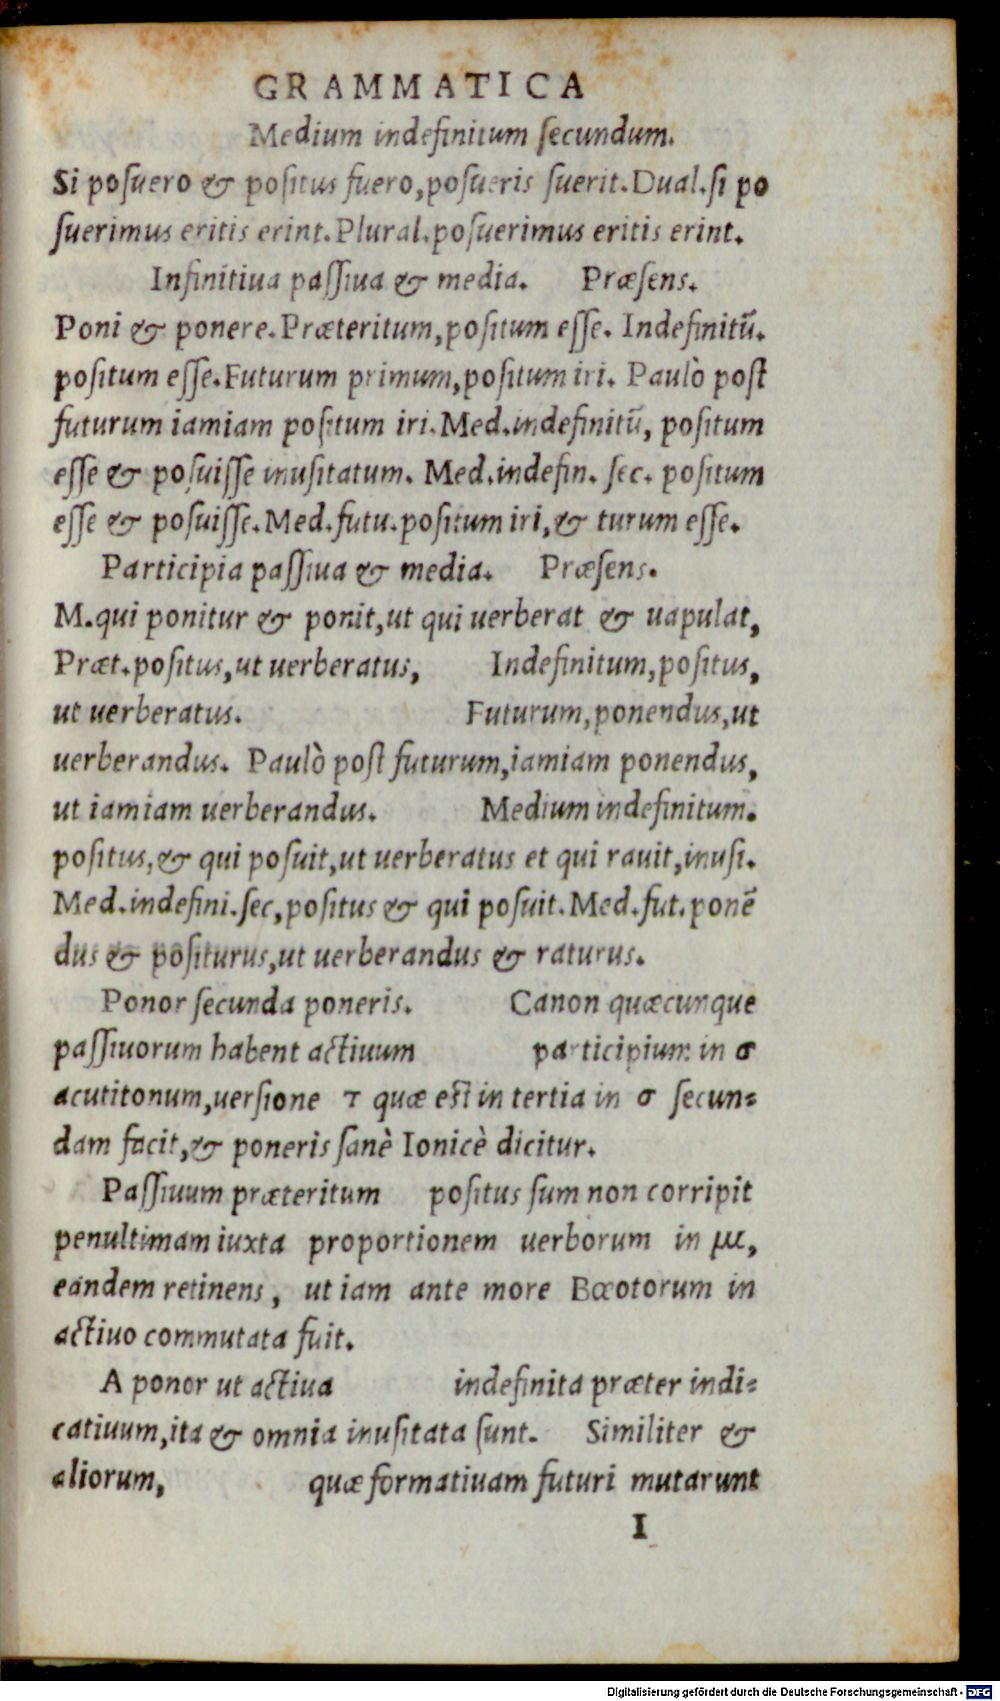 GRAMMATICA
Medium indefinitum ſecundum.
Si poſuero & poſitus fuero,poſueris ſuerit.Dual.ſi po
ſuerimus eritis erint.Plural.poſuerimus eritis erint.
Infinitiua paſſiua & media. Præſens.
Poni & ponere.Præteritum,poſitum eſſe. Indefinitū.
poſitum eſſe.Futurum primum,poſitum iri. Paulò poſt
futurum iamiam poſitum iri.Med.indefinitū, poſitum
eſſe & poſuiſſe inuſitatum. Med.indefin. ſec. poſitum
eſſe & poſuiſſe.Med.futu.poſitum iri,& turum eſſe.
Participia paſſiua & media. Præſens.
M.qui ponitur & ponit,ut qui uerberat & uapulat,
Præt.poſitus,ut uerberatus, Indefinitum,poſitus,
ut uerberatus. Futurum,ponendus,ut
uerberandus. Paulò poſt futurum,iamiam ponendus,
ut iamiam uerberandus. Medium indefinitum.
poſitus,& qui poſuit,ut uerberatus et qui rauit,inuſi.
Med.indefini.ſec,poſitus & qui poſuit.Med.fut.ponē
dus & poſiturus,ut uerberandus & raturus.
Ponor ſecunda poneris. Canon quæcunque
paſſiuorum habent actiuum participium in σ
acutitonum,uerſione τ quæ eſt in tertia in σ ſecun=
dam facit,& poneris ſanè Ionicè dicitur.
Paſſiuum præteritum poſitus ſum non corripit
penultimam iuxta proportionem uerborum in μι,
eandem retinens, ut iam ante more Bœotorum in
actiuo commutata fuit.
A ponor ut actiua indefinita præter indi=
catiuum,ita & omnia inuſitata ſunt. Similiter &
aliorum, quæ formatiuam futuri mutarunt
I
Digitalisierung gefördert durch die Deutsche Forschungsgemeinschaft - DFG